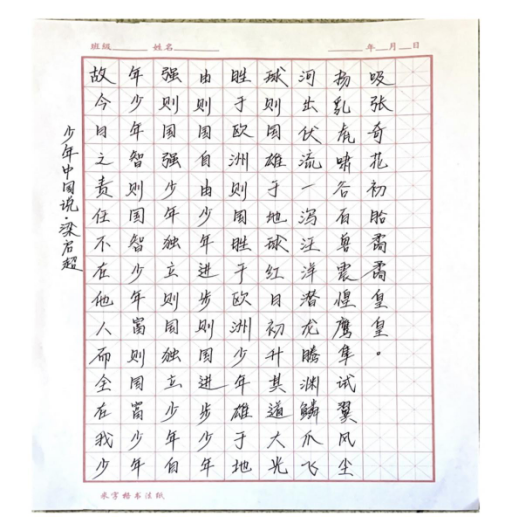 班级 姓名 年 月 日
少年中国说·梁启超
故今日之责任不在他人而全在我少
年少年智则国智少年富则国富少年
强则国强少年独立则国独立少年自
由则国自由少年进步则国进步少年
胜于欧洲则国胜于欧洲少年雄于地
球则国雄于地球红日初升其道大光
河出伏流一泻汪洋潜龙腾渊鳞爪飞
扬乳虎啸谷百兽震惶鹰隼试翼风尘
吸张奇花初胎矞矞皇皇。
米字格书法纸